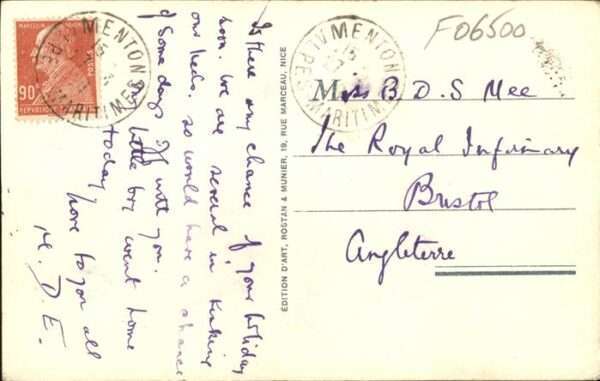 F06500
MARCELIN
90c
POSTES
MENTON
ALPES MARITIMES
MENTON
ALPES MARITIMES
Is there any chance of your holiday
soon. We are several in
our beds. so would have a chance
of some days
with you.
My little boy went home
today
Love to you all
M. D. E.
EDITION D'ART, ROSTAN & MUNIER, 19, RUE MARCEAU, NICE
Miss B D. S Mee
The Royal Infirmary
Bristol
Angleterre